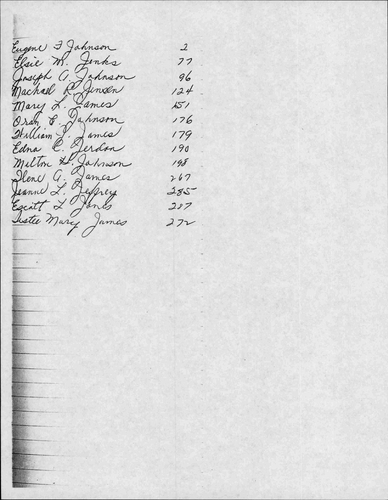 Eugene F Johnson 2
Elsie M. Jenks 77
Joseph A. Johnson 96
Machael R. Jensen 124
Mary L. James 151
Oran E. Johnson 176
William J. James 179
Edna C. Jerdon 190
Melton H. Johnson 198
Ilene A. James 267
Jeanne L. Jeffrey 285
L Jones
Mary James 272